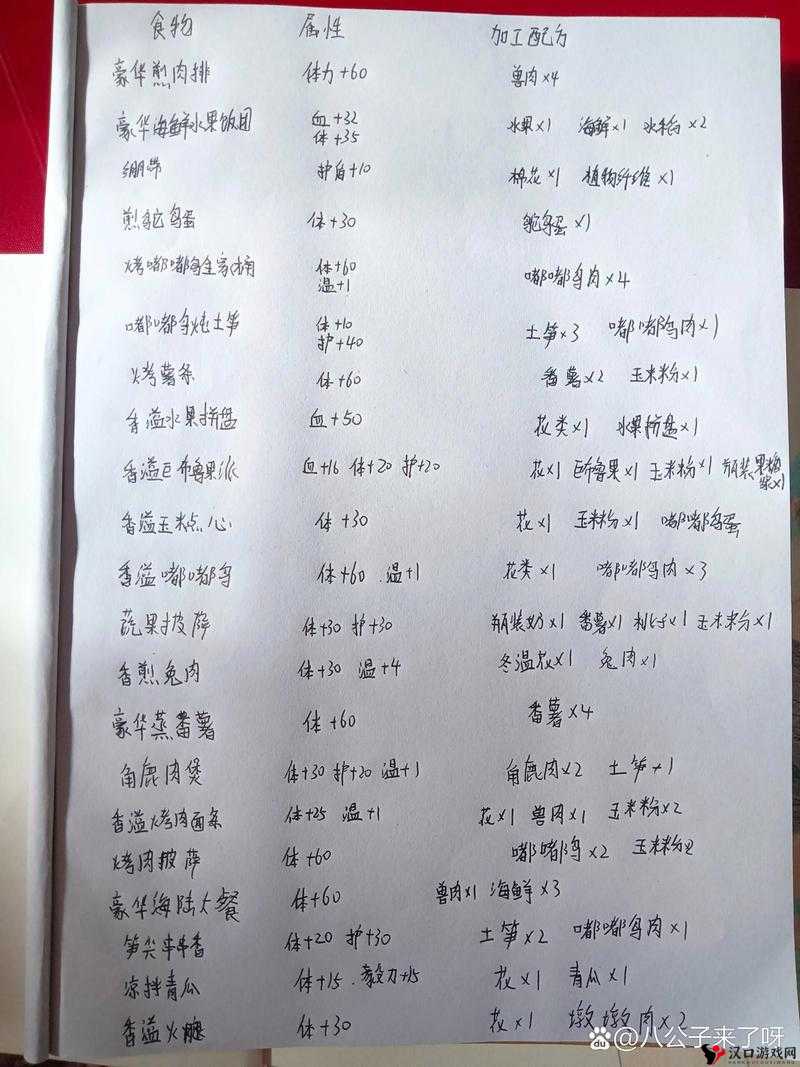 食物 属性 加工配方
豪华煎肉排 体力+60 兽肉×4
豪华海鲜水果饭团 血+32 体+35 水果×1 海鲜×1 水稻×2
绷带 护盾+10 棉花×1 植物纤维×1
煎鸵鸟蛋 体+30 鸵鸟蛋×1
烤嘟嘟鸟全家桶 体+60 温+1 嘟嘟鸟肉×4
嘟嘟鸟炖土笋 体+10 护+40 土笋×3 嘟嘟鸟肉×1
烤薯条 体+60 番薯×2 玉米粉×1
香溢水果拼盘 血+50 花类×1 水果拼盘×1
香溢巨布鲁果派 血+16 体+20 护+20 花×1 巨布鲁果×1 玉米粉×1 瓶装果浆×1
香溢玉米点心 体+30 花×1 玉米粉×1 嘟嘟鸟蛋
香溢嘟嘟鸟 体+60.温+1 花类×1 嘟嘟鸟肉×3
蔬果披萨 体+30 护+30 瓶装奶×1 番薯×1 桃子×1 玉米粉×1
香煎兔肉 体+30 温+4 冬温花×1 兔肉×1
豪华蒸番薯 体+60 番薯×4
角鹿肉煲 体+30 护+20 温+1 角鹿肉×2 土笋×1
香溢烤肉面条 体+25 温+1 花×1 兽肉×1 玉米粉×2
烤肉披萨 体+60 嘟嘟鸟×2 玉米粉
豪华海陆大餐 体+60 兽肉×1 海鲜×3
笋尖串香 体+20 护+30 土笋×2 嘟嘟鸟肉×1
凉拌青瓜 体+15.毅力+15 花×1 青瓜×1
香溢火腿 体+30 花×1 墩墩肉×2
Bai du @八公子来了呀
汉口游戏网